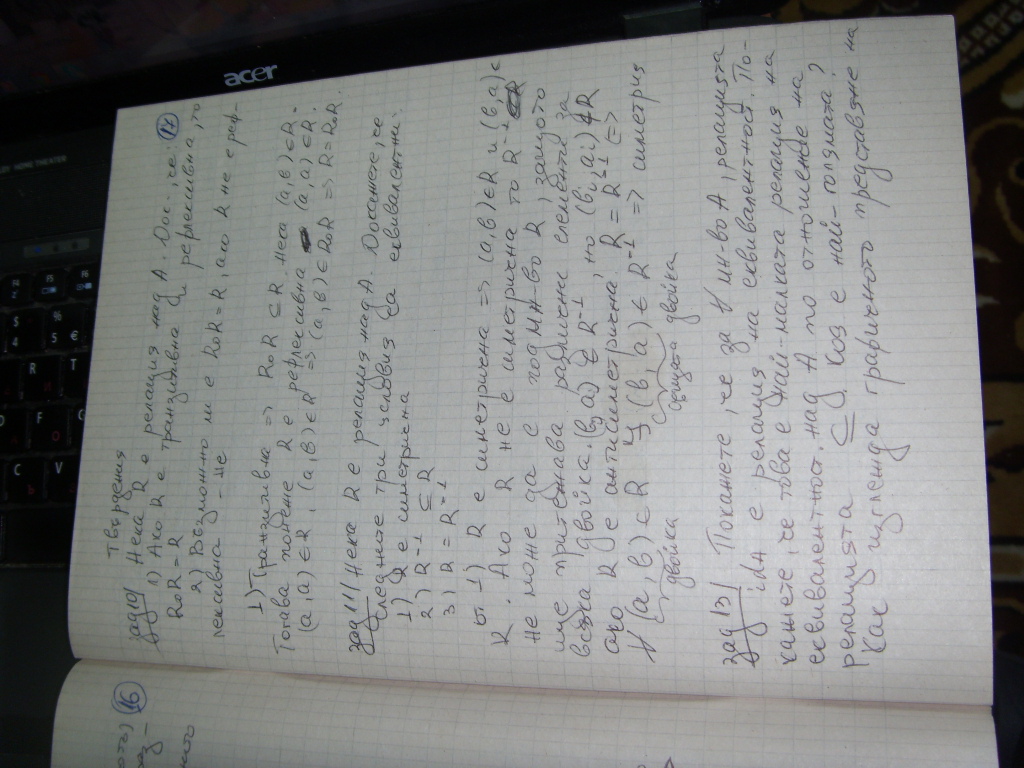 Твърдения
зад 10) Нека R е релация над A. Док., че: 17
1) Ако R е транзитивна и рефлексивна, то
R∘R = R
2) Възможно ли е R∘R = R, ако R не е реф-
лексивна - не
1) Транзитивна => R∘R ⊆ R. нека (a, b) ∈ R.
Тогава понеже R е рефлексивна (a, a) ∈ R.
(a, a) ∈ R, (a, b) ∈ R => (a, b) ∈ R∘R => R = R∘R.
зад 11) Нека R е релация над A. Докажете, че
следните три условия са еквивалентни:
1) R е симетрична
2) R⁻¹ ⊆ R
3) R = R⁻¹
От 1) R е симетрична => (a, b) ∈ R и (b, a) ∈
R. Ако R не е симетрична то R⁻¹
не може да е подмн-во R, защото
ще притежава различни елементи за
всяка двойка.
ако R е антисиметрична. R = R⁻¹ <=>
∀ (a, b) ∈ R ∃ (b, a) ∈ R⁻¹ => симетрия
двойка срещуа двойка
зад 13) Покажете, че за ∀ мн-во A, релацията
idA е релация на еквивалентност. По-
кажете, че това е най-малката релация на
еквивалентност над A по отношение на
релацията ⊆. Коя е най-голямата?
Как изглежда графичното представяне на
acer
HOME THEATER
16